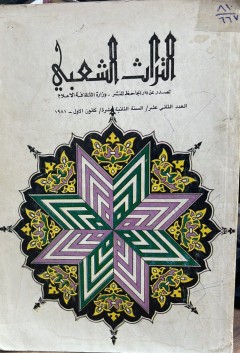 ٨١
٦٦٧
التراث الشعبي
تصدر عن دار الجاحظ للنشر - وزارة الثقافة والاعلام
العدد الثاني عشر / السنة الثانية عشرة / كانون الاول - ١٩٨١